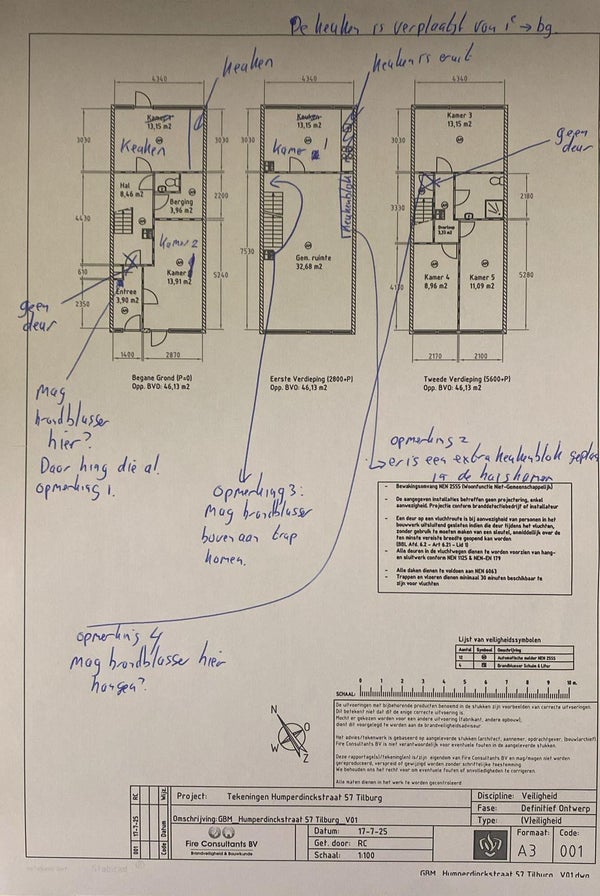 De keuken is verplaatst van 1e → bg.
keuken
keuken is eruit
4340
4340
4340
Kamer
13,15 m2
Keuken
Keuken
13,15 m2
Kamer 1
Kamer 3
13,15 m2
geen
deur
3030
3030
3030
3030
Hal
8,46 m2
Berging
3,96 m2
2200
keukenblok
2180
3330
Overloop
4430
Kamer 2
Kamer
13,91 m2
7530
Gem. ruimte
32,68 m2
Kamer 4
8,96 m2
Kamer 5
11,09 m2
610
5240
5280
Entree
3,90 m2
2350
geen
deur
1400
2870
2170
2100
Begane Grond (P=0)
Opp. BVO: 46,13 m2
Eerste Verdieping (2800+P)
Opp. BVO: 46,13 m2
Tweede Verdieping (5600+P)
Opp. BVO: 46,13 m2
Mag
brandblusser
hier?
Daar hing die al.
opmerking 1.
opmerking 2
er is een extra keukenblok geplaa
in de huiskamer
Opmerking 3:
Mag brandblusser
bovenaan trap
komen.
opmerking 4
Mag brandblusser hier
hangen?
- Bewakingsomvang NEN 2555 (Woonfunctie Niet-Gemeenschappelijk)
- De aangegeven installaties betreffen geen projectering, enkel
aanwezigheid. Projectie conform branddetectiebedrijf of installateur
- Een deur op een vluchtroute is bij aanwezigheid van personen in het
bouwwerk uitsluitend gesloten indien die deur tijdens het vluchten,
zonder gebruik te moeten maken van een sleutel, onmiddellijk over de
ten minste vereiste breedte geopend kan worden
(BBL Afd. 6.2 - Art 6.21 - Lid 1)
- Alle deuren in de vluchtwegen dienen te worden voorzien van hang-
en sluitwerk conform NEN 1125 & NEN-EN 179
- Alle daken dienen te voldoen aan NEN 6063
- Trappen en vloeren dienen minimaal 30 minuten beschikbaar te
zijn voor vluchten
Lijst van veiligheidssymbolen
Aantal Symbool Omschrijving
12 Automatische melder NEN 2555
4 Brandblusser Schuim 6 Liter
SCHAAL:
0 1 2 3 4 5 6 7 8 9 10 m.
De uitvoeringen met bijbehorende producten benoemd in de stukken zijn voorbeelden van correcte uitvoeringen.
Dit betekent niet dat dit de enige correcte uitvoering is.
Mocht er gekozen worden voor een andere uitvoering (fabrikant, andere opbouw),
dient dit voorgelegd te worden aan de brandveiligheidsadviseur.
Het advies/tekenwerk is gebaseerd op aangeleverde stukken (architect, aannemer, opdrachtgever, (bouw)archief).
Fire Consultants BV is niet verantwoordelijk voor eventuele fouten in de aangeleverde stukken.
Deze rapportage(s)/tekening(en) is/zijn eigendom van Fire Consultants BV en mag/mogen niet worden
gereproduceerd, verspreid of gewijzigd worden zonder schriftelijke toestemming.
We behouden ons het recht voor om eventuele fouten of onvolledigheden te corrigeren.
Alle maten dienen in het werk te worden gecontroleerd
N
O
W
Z
RC
Wijz.
17-7-25
Datum
001
Code
Project: Tekeningen Humperdinckstraat 57 Tilburg
Omschrijving: GBM_Humperdinckstraat 57 Tilburg_V01
Fire Consultants BV
Brandveiligheid & Bouwkunde
Datum: 17-7-25
Get. door: RC
Schaal: 1:100
Discipline: Veiligheid
Fase: Definitief Ontwerp
Type: (V)eiligheid
Formaat: A3
Code: 001
GBM_Humperdinckstraat 57 Tilburg V01.dwg